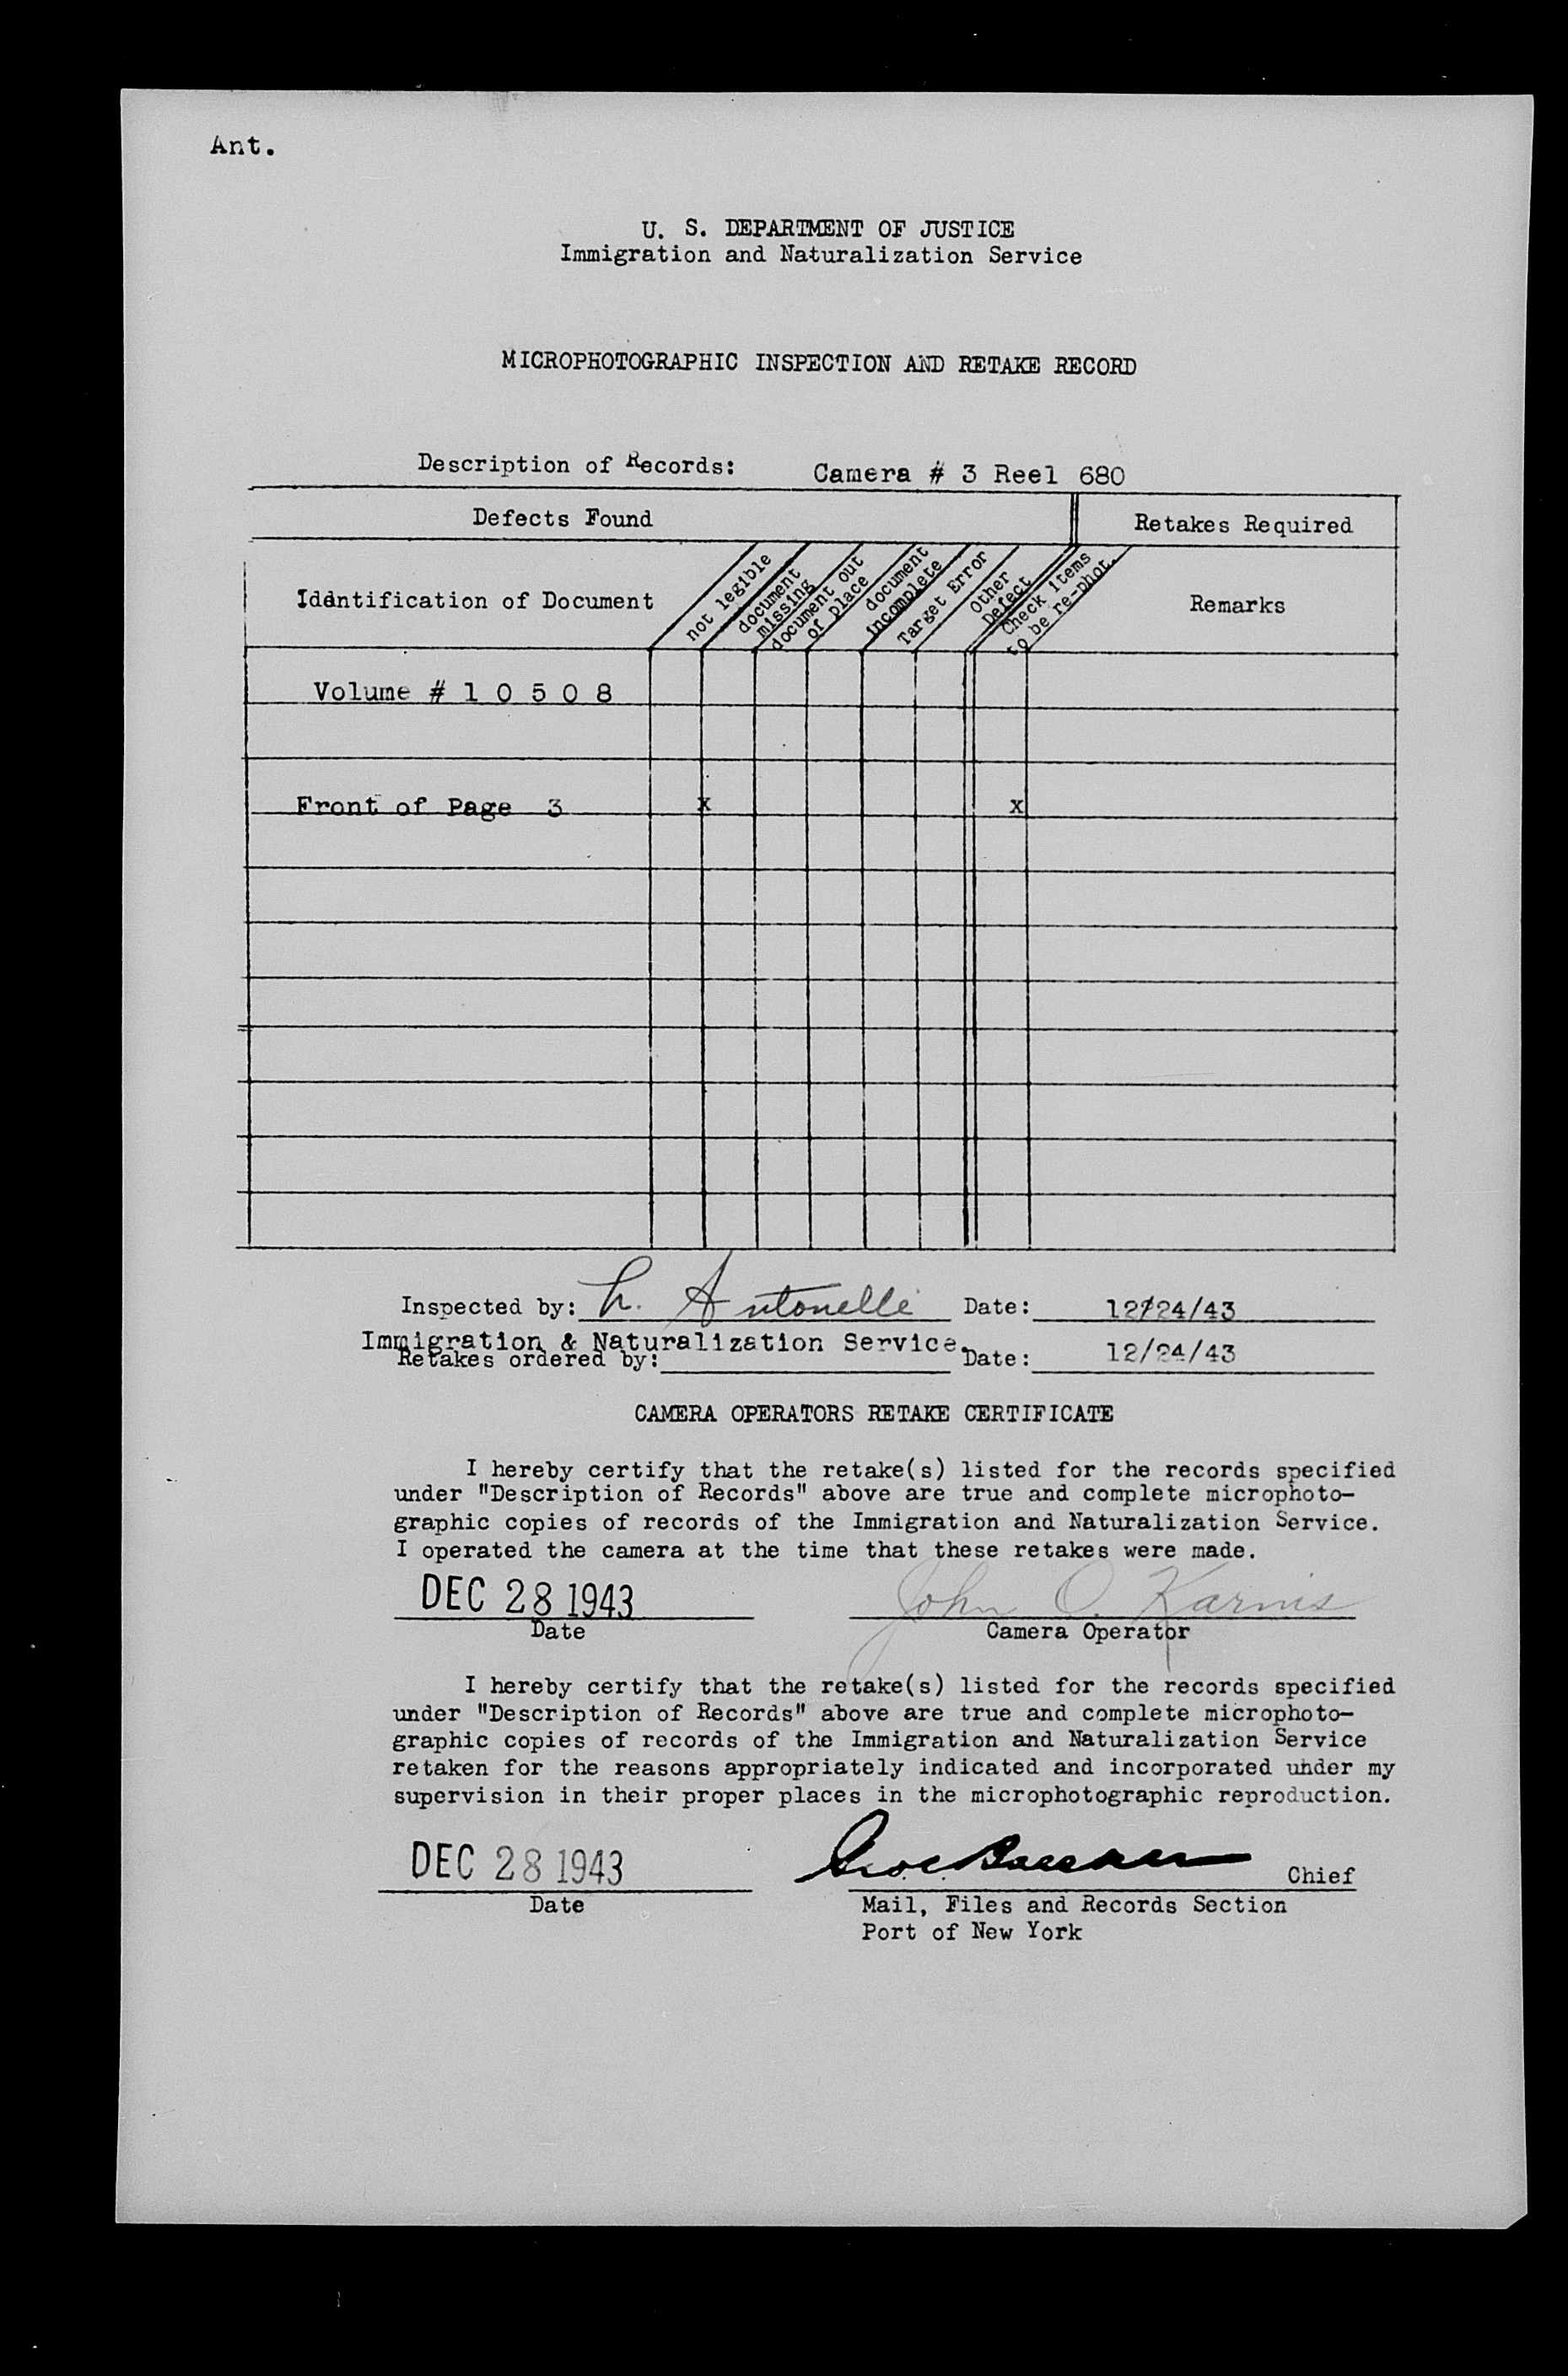 Ant.
U. S. DEPARTMENT OF JUSTICE
Immigration and Naturalization Service
MICROPHOTOGRAPHIC INSPECTION AND RETAKE RECORD
Description of Records: Camera # 3 Reel 680
Defects Found Retakes Required
Identification of Document
not legible
document missing
document out of place
document incomplete
Target Error
Other Defect
Check items to be re-phot.
Remarks
Volume # 1 0 5 0 8
Front of Page 3 x x
Inspected by: L. Antonelle Date: 12/24/43
Immigration & Naturalization Service.
Retakes ordered by: Date: 12/24/43
CAMERA OPERATORS RETAKE CERTIFICATE
I hereby certify that the retake(s) listed for the records specified
under "Description of Records" above are true and complete microphoto-
graphic copies of records of the Immigration and Naturalization Service.
I operated the camera at the time that these retakes were made.
DEC 28 1943 John O. Karnis
Date Camera Operator
I hereby certify that the retake(s) listed for the records specified
under "Description of Records" above are true and complete microphoto-
graphic copies of records of the Immigration and Naturalization Service
retaken for the reasons appropriately indicated and incorporated under my
supervision in their proper places in the microphotographic reproduction.
DEC 28 1943 Chief
Date Mail, Files and Records Section
Port of New York